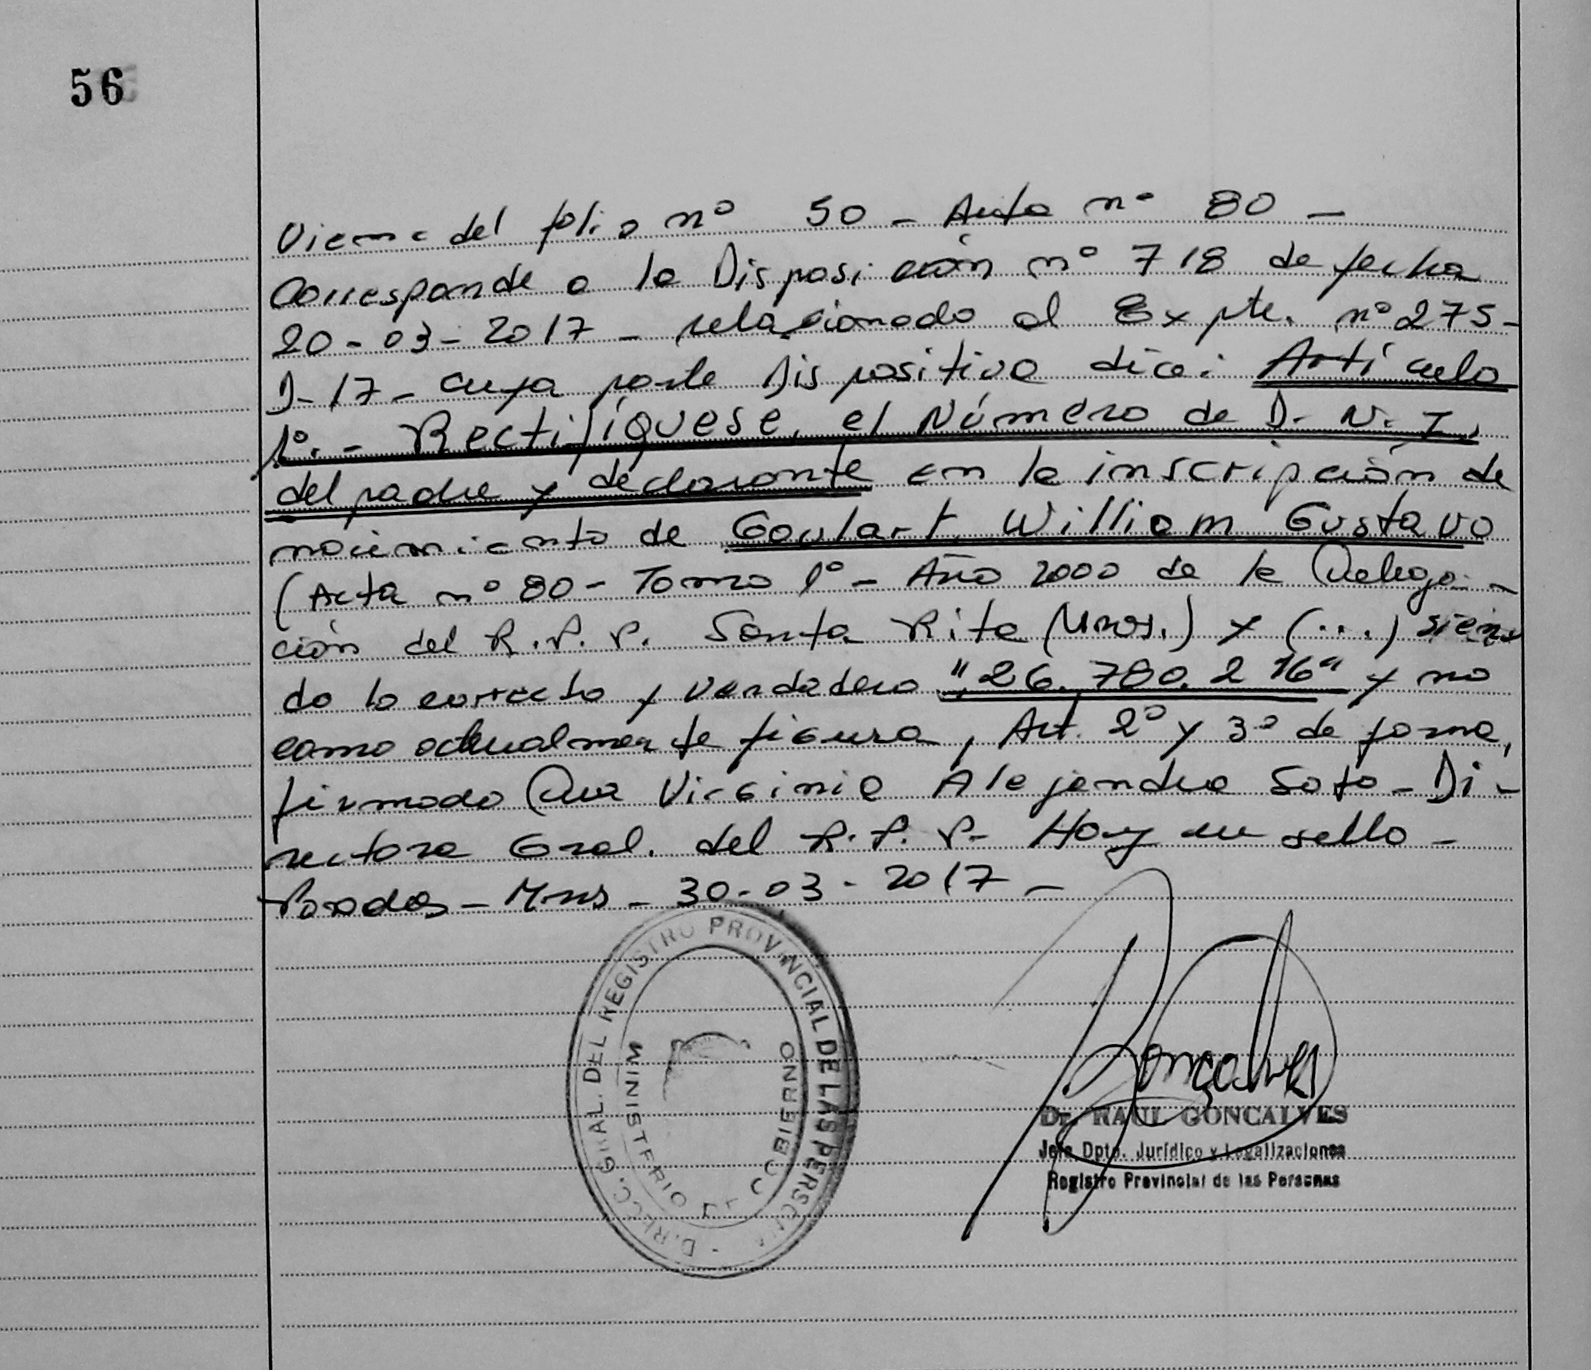 56
Viene del folio nº 50 - Acta nº 80 -
Corresponde a la Disposición nº 718 de fecha
20-03-2017 - relacionado al Expte. nº 275-
D-17 - cuya parte Dispositiva dice: Artículo
1º.- Rectifíquese, el Número de D.N.I.
del padre y declarante en la inscripción de
nacimiento de Goulart, William Gustavo
(Acta nº 80 - Tomo 1º - Año 2000 de la Delega-
ción del R.P.P. Santa Rita (Mnes.) y (...) sien-
do lo correcto y verdadero "26.780.216" y no
como actualmente figura, Art. 2º y 3º de forma,
firmado Dra Virginia Alejandra Soto - Di-
rectora Gral. del R.P.P. Hay un sello -
Posadas - Mns - 30-03-2017 -
DIRECC. GRAL. DEL REGISTRO PROVINCIAL DE LAS PERSONAS
MINISTERIO DE GOBIERNO
Gonçalves
Dr. RAUL GONCALVES
Jefe Dpto. Jurídico y Legalizaciones
Registro Provincial de las Personas